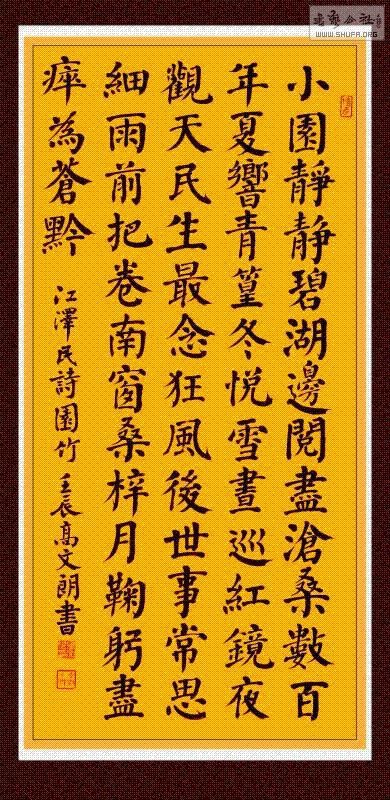 小園靜静碧湖邊閱盡滄桑數百
年夏響青篁冬悅雪晝巡紅鏡夜
觀天民生最念狂風後世事常思
細雨前把卷南窗桑梓月鞠躬盡
瘁為蒼黔
江澤民詩園竹 壬辰高文朗書
WWW.SHUFA.ORG